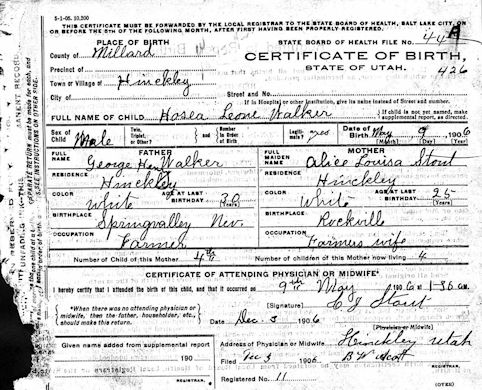 5-1-05. 10,200
THIS CERTIFICATE MUST BE FORWARDED BY THE LOCAL REGISTRAR TO THE STATE BOARD OF HEALTH, SALT LAKE CITY, ON
OR BEFORE THE 5TH OF THE FOLLOWING MONTH, AFTER FIRST HAVING BEEN PROPERLY REGISTERED.
PLACE OF BIRTH
STATE BOARD OF HEALTH FILE NO. 44
County of Millard
CERTIFICATE OF BIRTH,
Precinct of
STATE OF UTAH. 426
Town or Village of Hinckley
City of
Street and No.
If in Hospital or other Institution, give its name instead of Street and number.
FULL NAME OF CHILD Hosea Leone Walker
If child is not yet named, make supplemental report, as directed.
Sex of Child Male
Twin, Triplet, or Other?
and
Number in Order of Birth
Legitimate? yes
Date of Birth May 9 1906
(Month) (Day) (Year)
FATHER
FULL NAME George Walker
MOTHER
FULL MAIDEN NAME Alice Louisa Stout
RESIDENCE Hinckley
RESIDENCE Hinckley
COLOR White
AGE AT LAST BIRTHDAY 30 (Years)
COLOR White
AGE AT LAST BIRTHDAY 25 (Years)
BIRTHPLACE Springvalley Nev.
BIRTHPLACE Rockville
OCCUPATION Farmer
OCCUPATION Farmers wife
Number of Child of this Mother 4th
Number of children of this Mother now living 4
CERTIFICATE OF ATTENDING PHYSICIAN OR MIDWIFE*
I hereby certify that I attended the birth of this child, and that it occurred on 9th May 1906
*When there was no attending physician or midwife, then the father, householder, etc., should make this return.
(Signature) Stout
(Physician or Midwife)
Date Dec. 3 1906
Given name added from supplemental report
190
REGISTRAR.
Address of Physician or Midwife Hinckley Utah
Filed Dec 3 1906
Registered No. 11
REGISTRAR